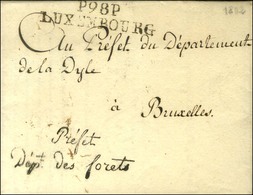 P98P
LUXEMBOURG
Au Préfet du Département
de la Dyle
à
Bruxelles.
Préfet
Dépt. des forets